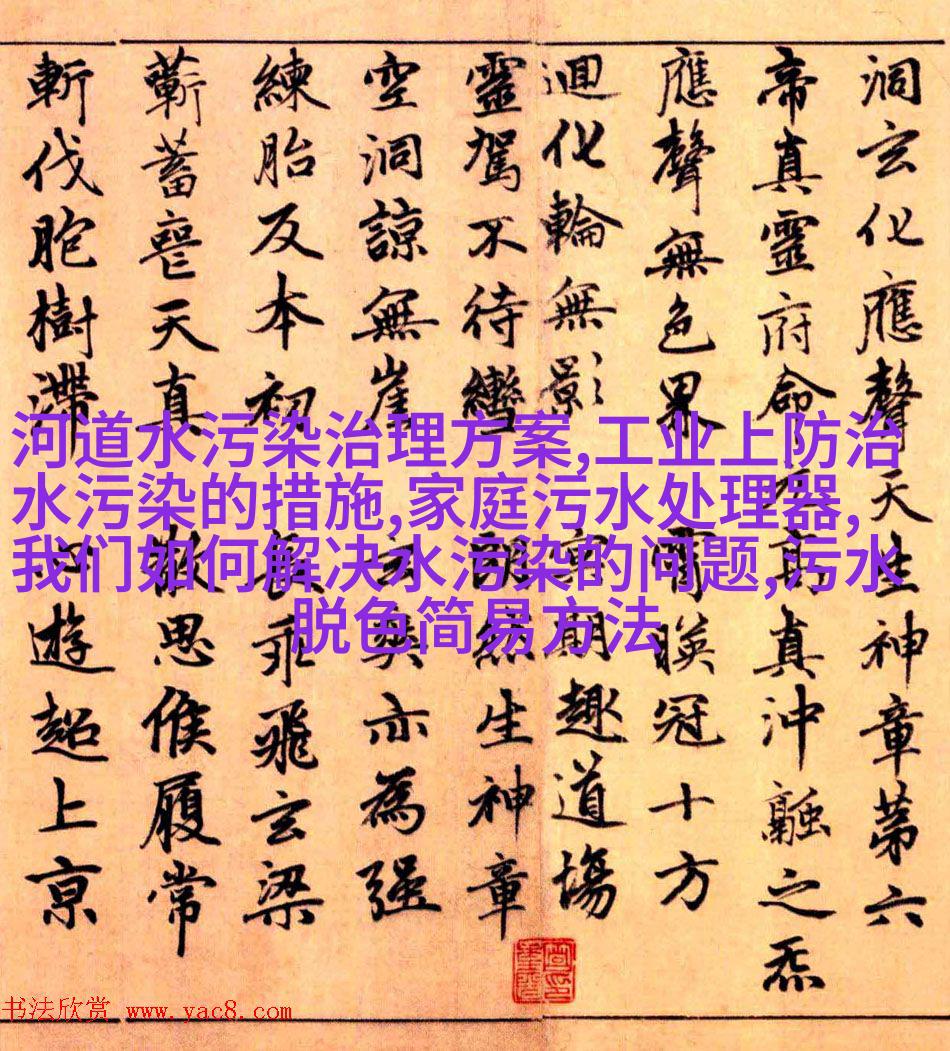 河道水污染治理方案,工业上防治
水污染的措施,家庭污水处理器,
我们如何解决水污染的问题,污水
脱色简易方法
洞玄化應聲天生神章第六
帝真靈府命真沖融之炁
應聲無色界霄映冠十方
迴化輪無影冥期趣道場
靈駕不待轡朗然生神章
空洞諒無崖玄爽亦為强
練胎反本初長乘飛玄梁
蘄蓄喪天真散思候履常
斬伐胞樹滯心遊超上京
书法欣赏 www.yac8.com